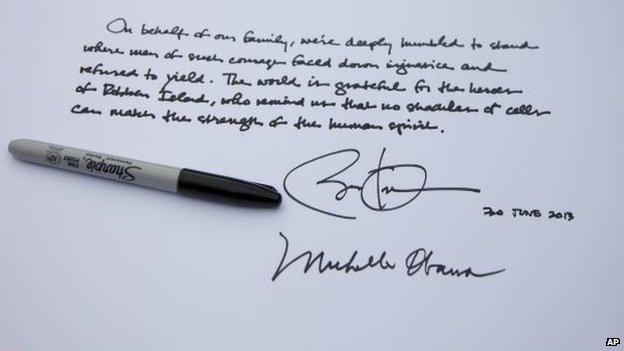 On behalf of our family, we're deeply humbled to stand
where men of such courage faced down injustice and
refused to yield. The world is grateful for the heroes
of Robben Island, who remind us that no shackles or cells
can match the strength of the human spirit.
Sharpie
FINE POINT
30 JUNE 2013
Michelle Obama
AP